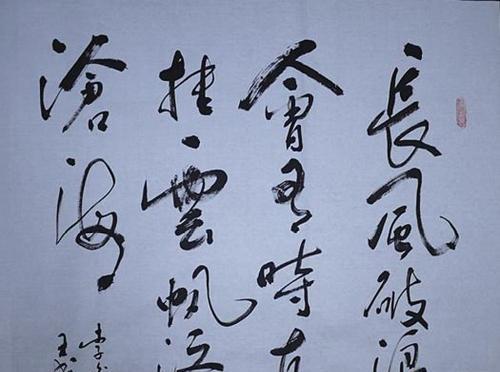 長風破浪
會有時直
挂雲帆濟
滄海
李白